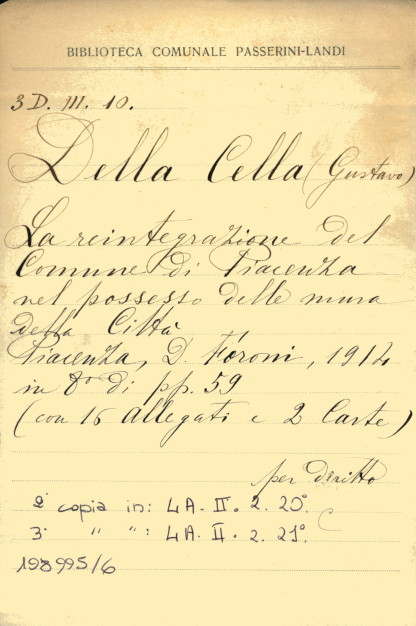 BIBLIOTECA COMUNALE PASSERINI-LANDI
3 D. III. 10.
Della Cella (Gustavo)
La reintegrazione del
Comune di Piacenza
nel possesso delle mura
della Città
Piacenza, D. Foroni, 1914
in 8º di pp. 59
(con 16 allegati e 2 Carte)
per diritto
2ª copia in: 4A. II. 2. 20º.
3ª " ": 4A. II. 2. 21º.
198995/6